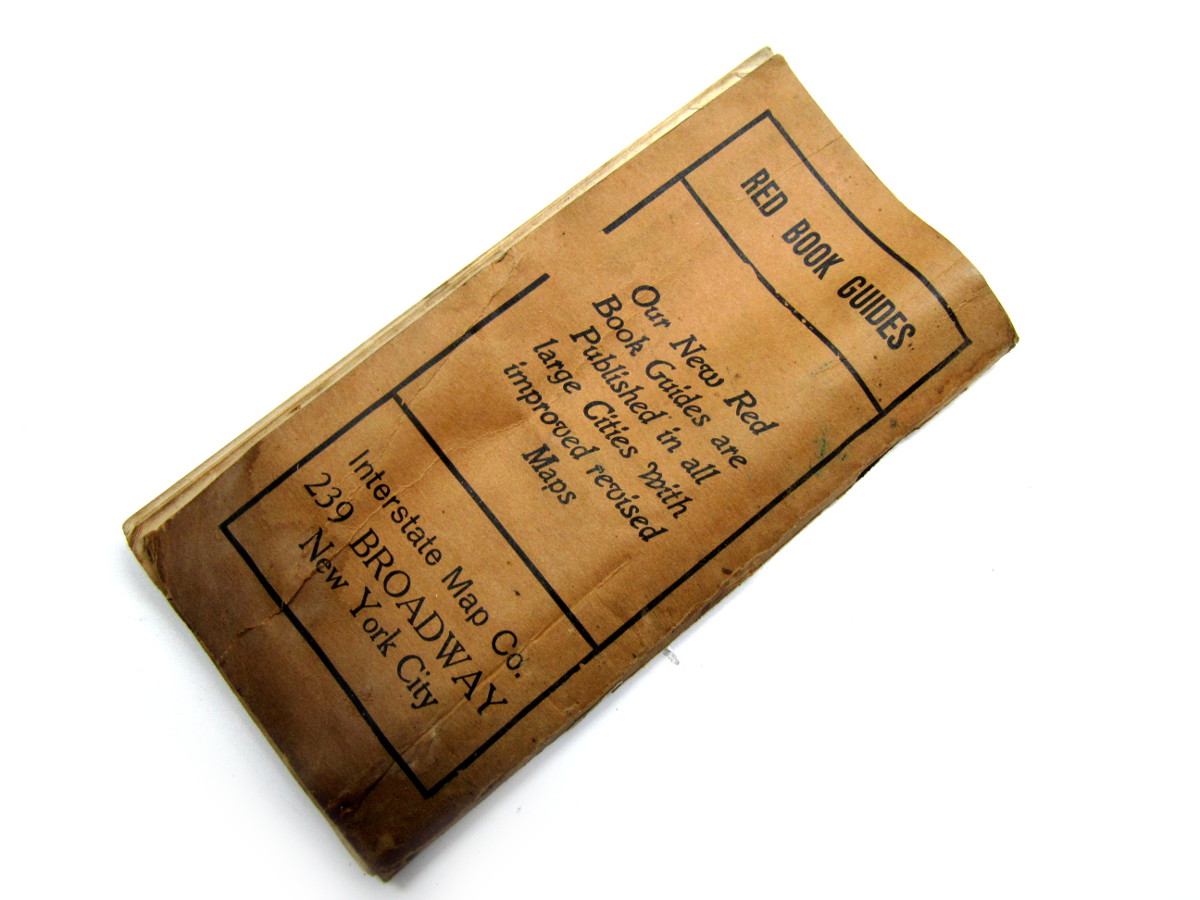 RED BOOK GUIDES
Our New Red
Book Guides are
Published in all
large Cities with
improved revised
Maps
Interstate Map Co.
239 BROADWAY
New York City